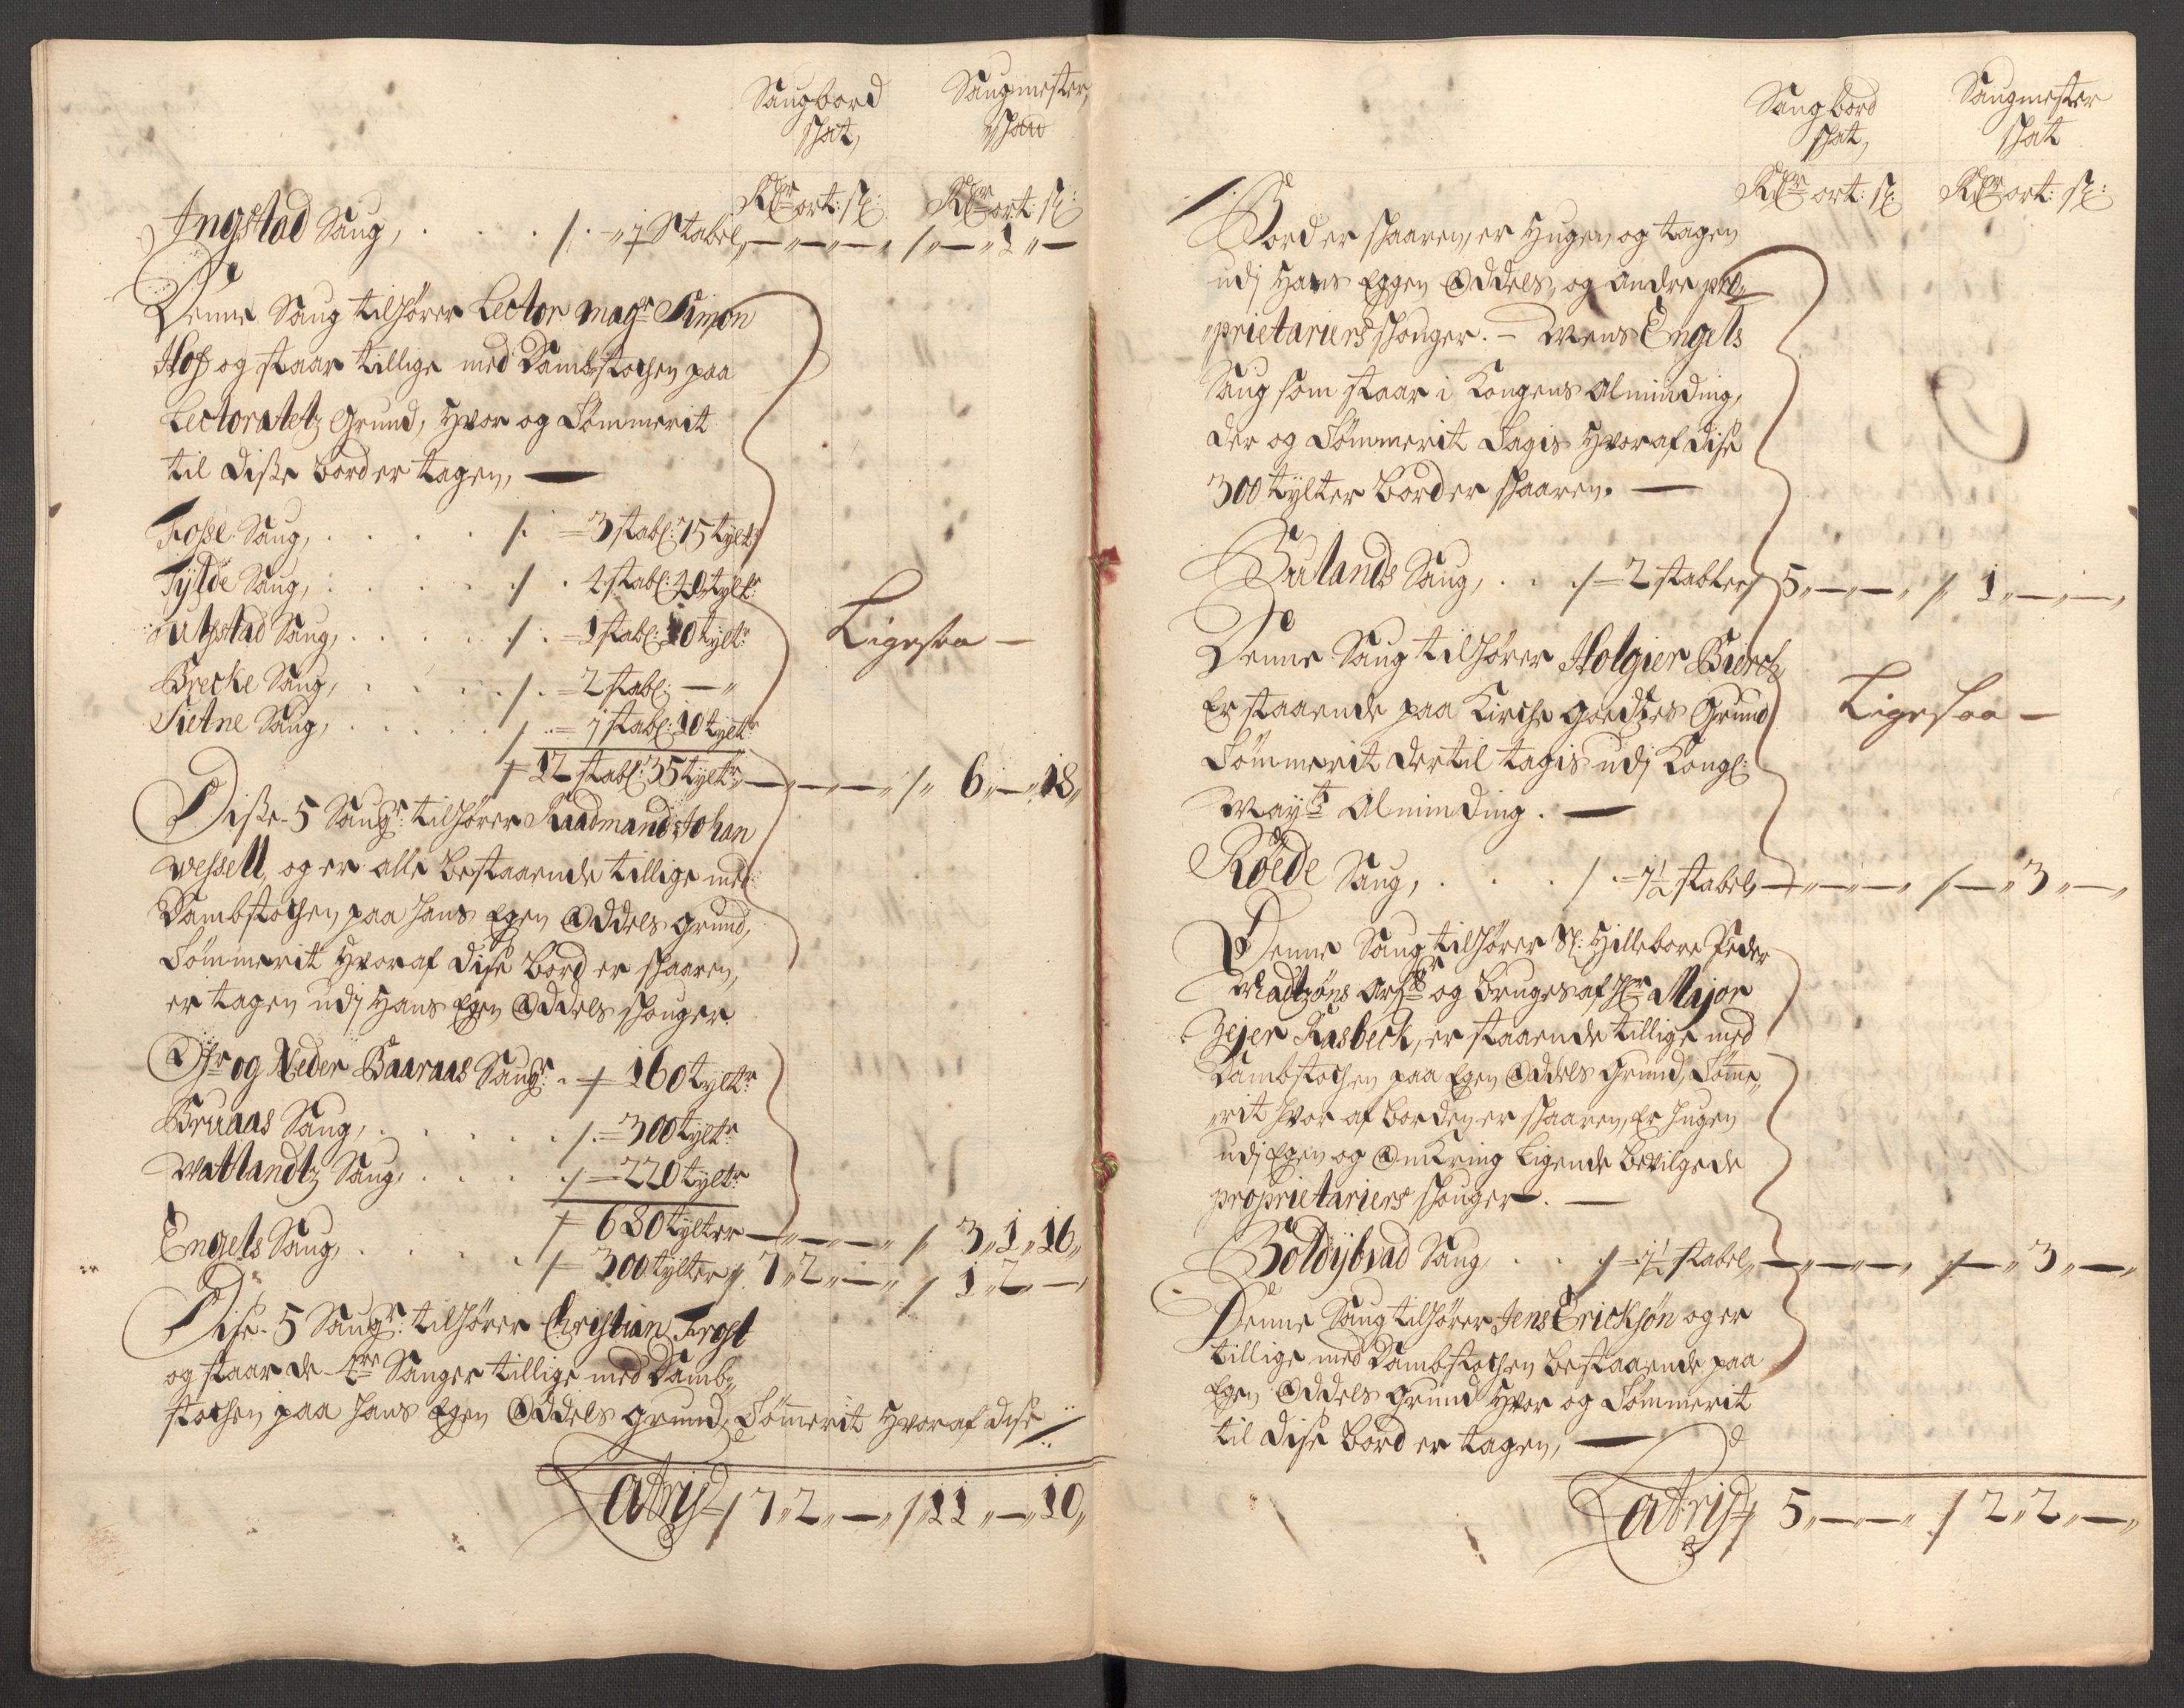 Saugbord Saugmester,
skat, skat
Rdr ort: s: Rdr ort: s:
Ingstad Saug, . . . /. „ 1 Stabel, — „ — „ — / „ — „ 1 „ —
Denne Saug tilhører Lector Magr Simon
Hof og staar tillige med Dambstochen paa
Lectoratetz Grund, hvor og Tömmerit
til disse bord er tagen, —
Fosse Saug, . . . . /. = 3 stabl: 75 tylt
Fylde Saug, . . . . / . 4 stabl: 40 tyltr:
Utstad Saug, . . . . . /. = 1 stabl: 10 tyltr:
Brecke Saug, . . . . . /. = 2 stabl: — „
Sietne Saug, . . . . . / .. = 1 stabl: 10 tyltr
/ 12 stabl: 35 tyltr — „ — „ — „ / „ 6 „ — „ 18 „
Disse 5 Saugr: tilhører Raadmand Johan
Wessell, og er alle bestaaende tillige med
Dambstochen paa hans Egen Oddels grund,
Tömmerit hvoraf disse bord er skaaren,
er tagen udj hans Egen Oddels skouger.
Ofr og Neder Baaraas Saugr: . / 160 tyltr:
Bruaas Saug, . . . . . . /. = 300 tyltr:
Watlandtz Saug, . . . . . / = 220 tyltr
/ 680 tylter — „ — „ — „ / 3 „ 1 „ 16 „
Engels Saug, . . . . . / = 300 tylter / 7 „ 2 „ — „ / 1 „ 2 „ —
Disse 5 Saugr: tilhører Christian Frost
og staar de 4re Sauger tillige med Damb„
stochen paa hans Egen Oddels grund, Tömmerit hvoraf disse /
Latris / 7 „ 2 „ — „ / 11 „ — „ 10 „
Saugbord Saugmester
skat, skat
Rdr ort: s: Rdr ort: s:
/. Bord er skaaren, er hugen og tagen
udj hans Eggen Oddels, og andre pro„
„prietariers skouger. — Mens Engels
Saug som staar i Kongens Alminding,
der og Tömmerit tagis hvoraf disse
300 tylter bord er skaaren. —
Bulands Saug, . . . / = 2 stabler / 5 „ — „ — „ / „ 1 „ — „ — „
Denne Saug tilhører Holgier Bierck
Er staaende paa Kirche goedtzes Grund
Tömmerit dertil tagis udj Kongl:
Mayts Alminding. —
Röede Saug, . . . / . = 1 1/2 stabel, — „ — „ — „ / — „ 3 „ — „
Denne Saug tilhører Sl: Hillebore Peder
Madtzöns Arfr og bruges af Hr Major
Zejer Rasbeck, er staaende tillige med
Dambstochen paa Egen Oddels Grund, Tömme„
„rit hvor af borden er skaaren, Er hugen
udj Egen og Omkring ligende bevilgede
proprietariers skouger. —
Boldybrad Saug, . . . / = 1 1/2 stabel, — „ — „ — „ / — „ 3 „ — „
Denne Saug tilhører Jens Erickson og er
tillige med Dambstochen bestaaende paa
Egen Oddels grund hvor og Tömmerit
til disse bord er tagen, —
Latris / 5 „ — „ — „ / 2 „ 2 „ — „
Ligesaa —
Ligesaa —